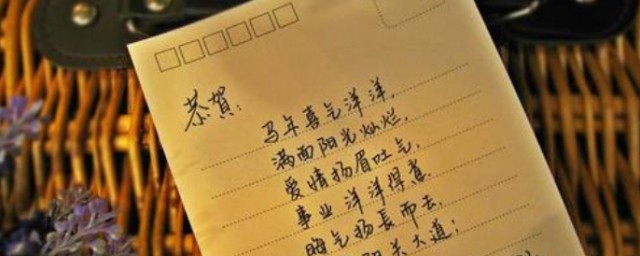 恭賀:
马年喜气洋洋,
满面阳光灿烂,
爱情扬眉吐气,
事业洋洋得意,
晦气扬長而去,
阳关大道;